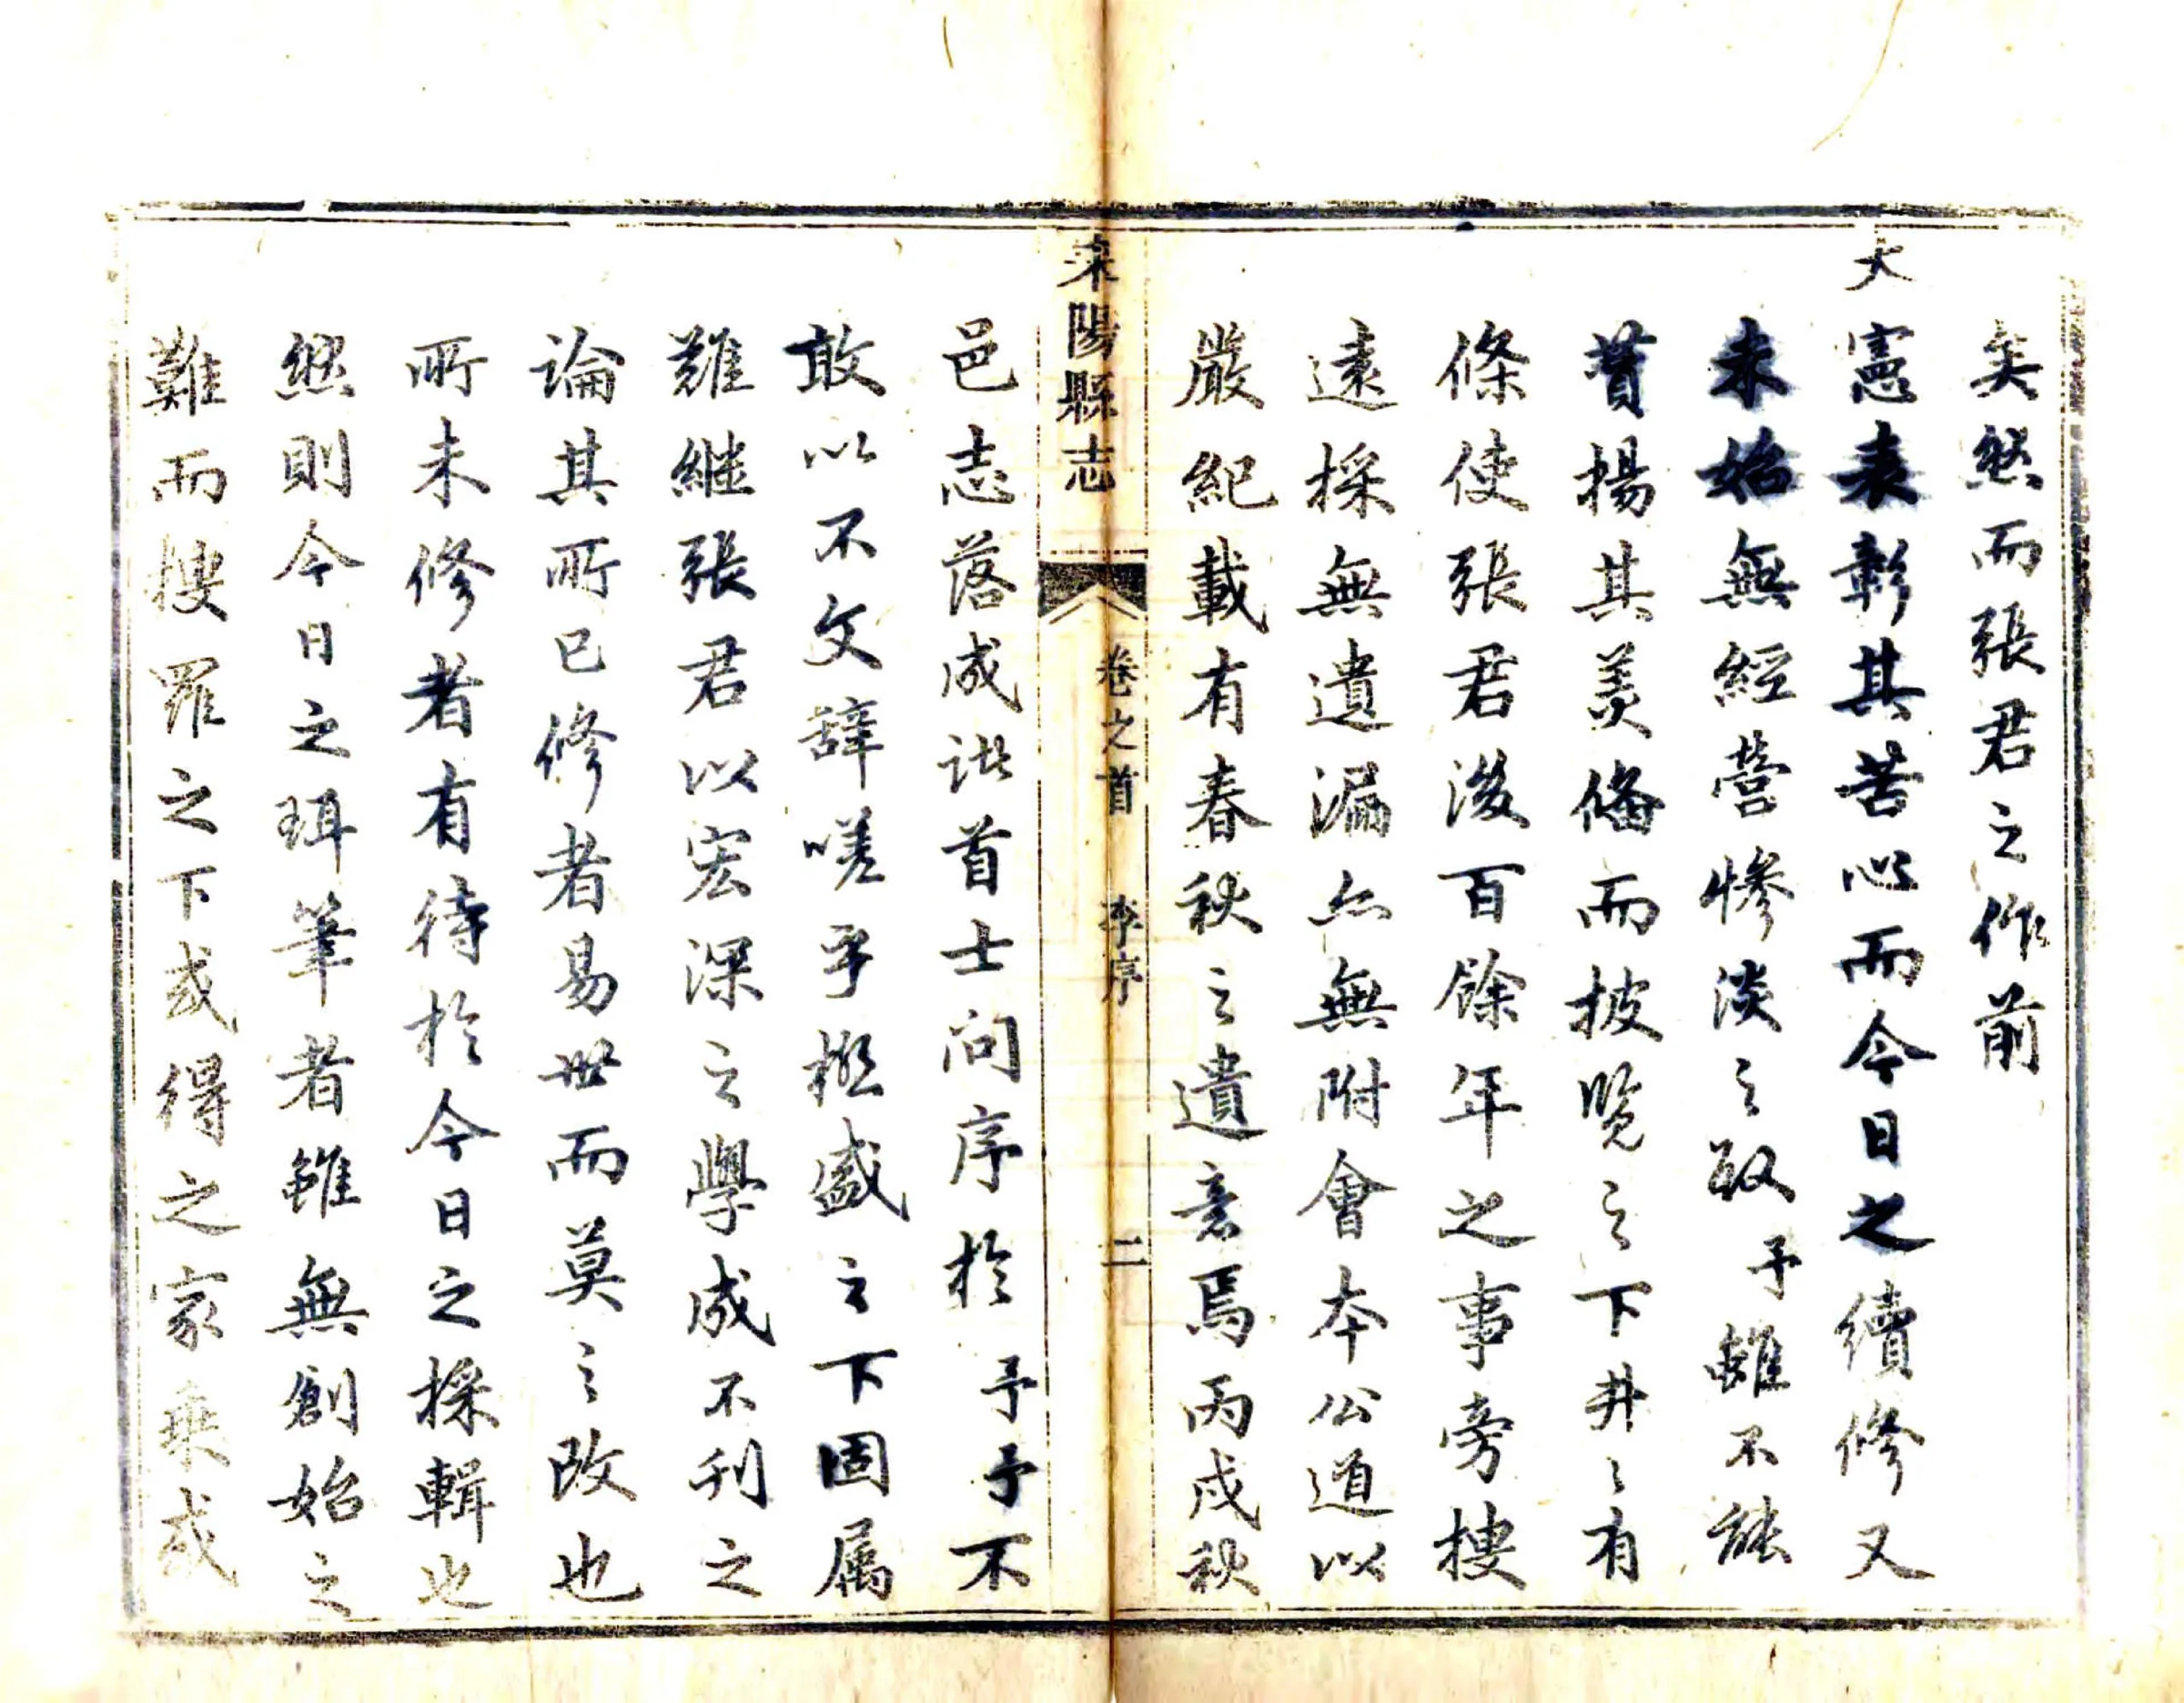 矣然而張君之作前
大憲表彰其苦心而今日之續修又
未始無經營慘淡之致予雖不能
賛揚其美備而披覽之下井〻有
條使張君後百餘年之事旁搜
遠採無遺漏亦無附會本公道以
嚴紀載有春秋之遺意焉丙戌秋
耒陽縣志 卷之首 李序 二
邑志落成諸首士问序於予予不
敢以不文辭嗟乎極盛之下固属
難継張君以宏深之學成不刊之
論其所已修者易世而莫之改也
所未修者有待於今日之採輯也
然則今日之珥筆者雖無創始之
難而搜罗之下或得之家乘或